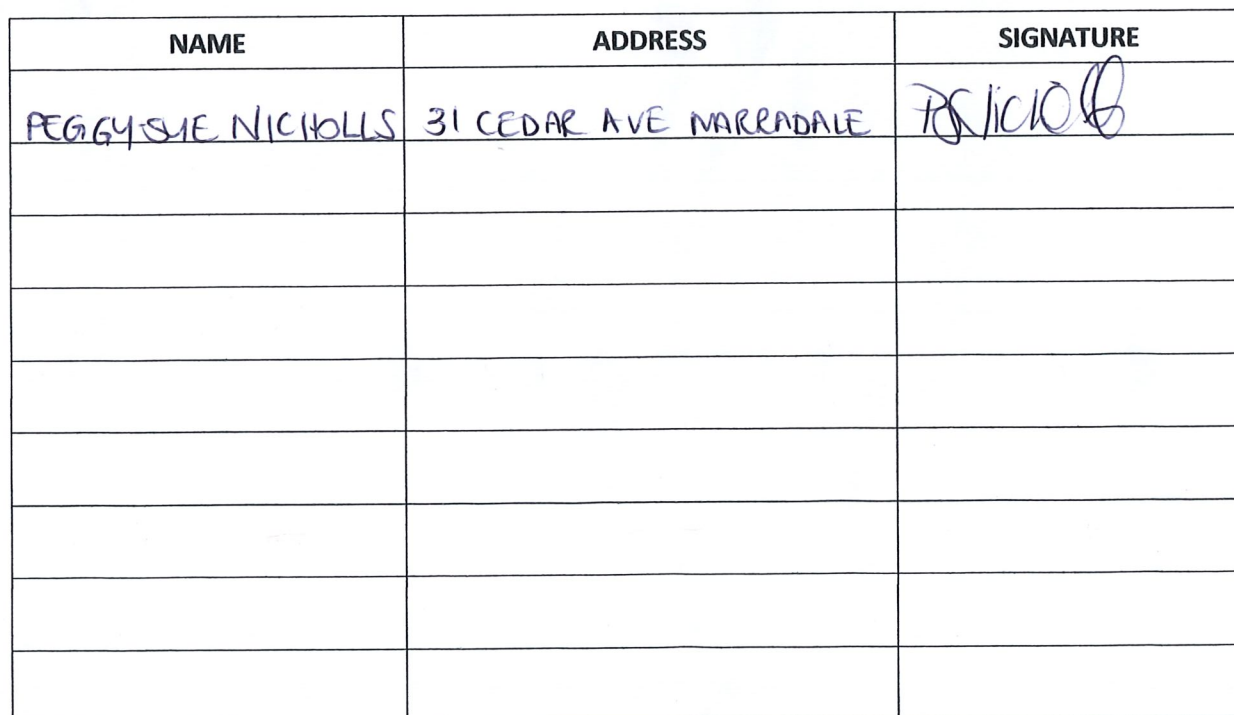 NAME ADDRESS SIGNATURE
PEGGY-SUE NICHOLLS 31 CEDAR AVE NARRADALE